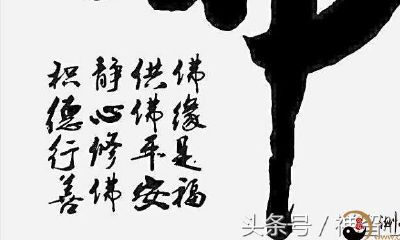 佛缘是福
供佛平安
静心修佛
积德行善
头条号/禅